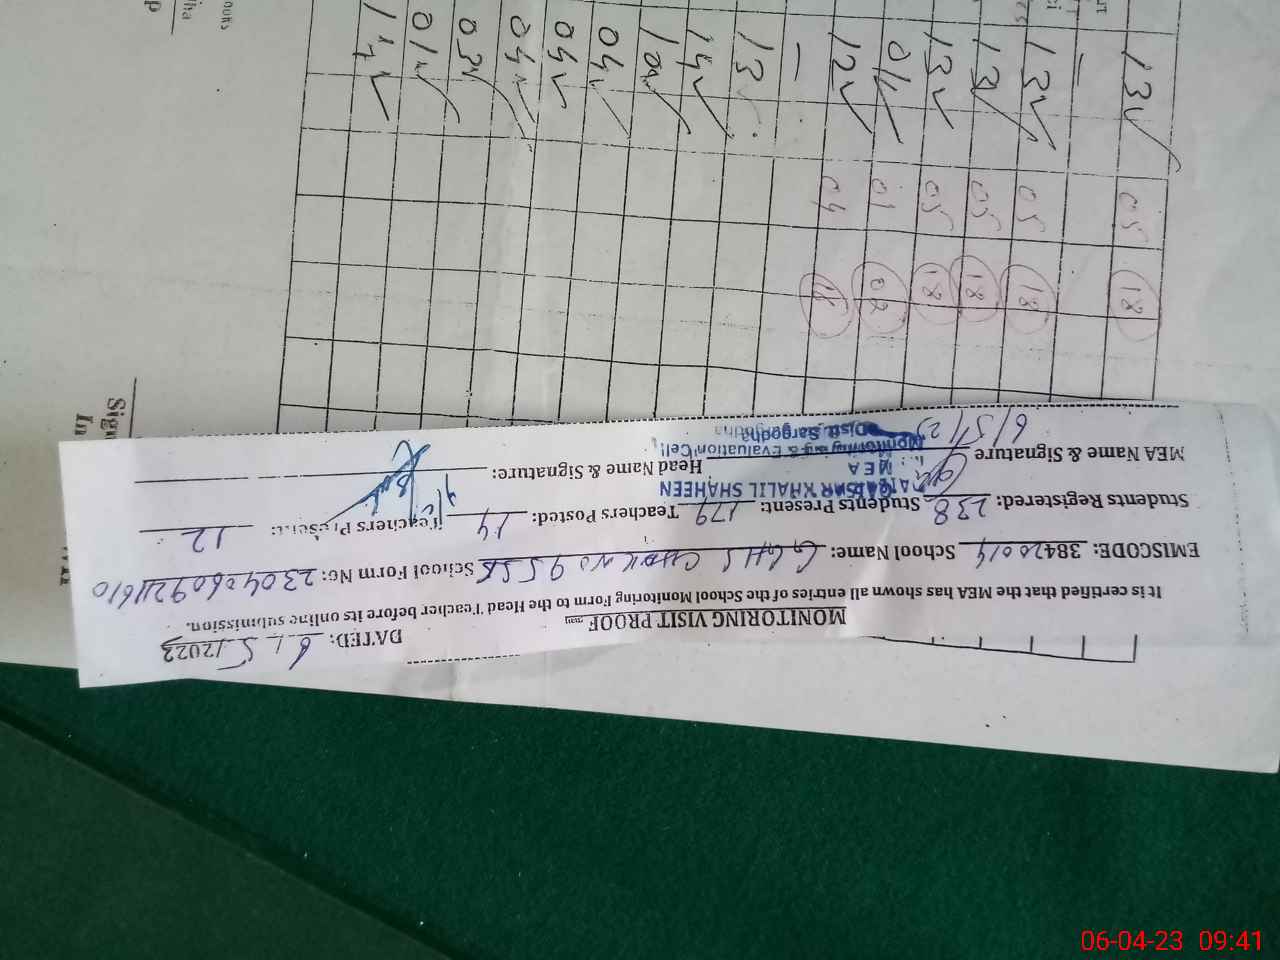 MONITORING VISIT PROOF
DATED: 6/5/2023
It is certified that the MEA has shown all entries of the School Monitoring Form to the Head Teacher before its online submission.
EMISCODE: 38420014 School Name: GGHS CHAK NO 95 SB School Form No:
Students Registered: 238 Students Present: 179 Teachers Posted: 14 Teachers Present: 12
MEA Name & Signature Head Name & Signature:
6/5/23
KHALIL SHAHEEN
MEA
Monitoring & Evaluation Cell
Distt. Sargodha
13 05 18
-
13 05 18
13 05 18
13 05 18
01 01 02
12 04
-
13
14
10
04
04
04
03
01
14
Sig
In
06-04-23 09:41